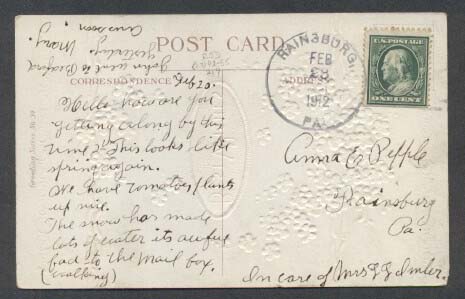 POST CARD
CORRESPONDENCE
ADDRESS
Feb 20.
Hello how are you
getting along by this
time? This looks like
spring again.
We have tomatoes plants
up nice.
The snow has made
lots of water its awful
bad to the mail box.
(walking)
John went to Bedford
yesterday. Mary.
Ans soon
RAINSBURG,
FEB
1912
PA.
U.S. POSTAGE
ONE CENT
Anna E Pepple
Rainsburg
Pa.
In care of Mrs